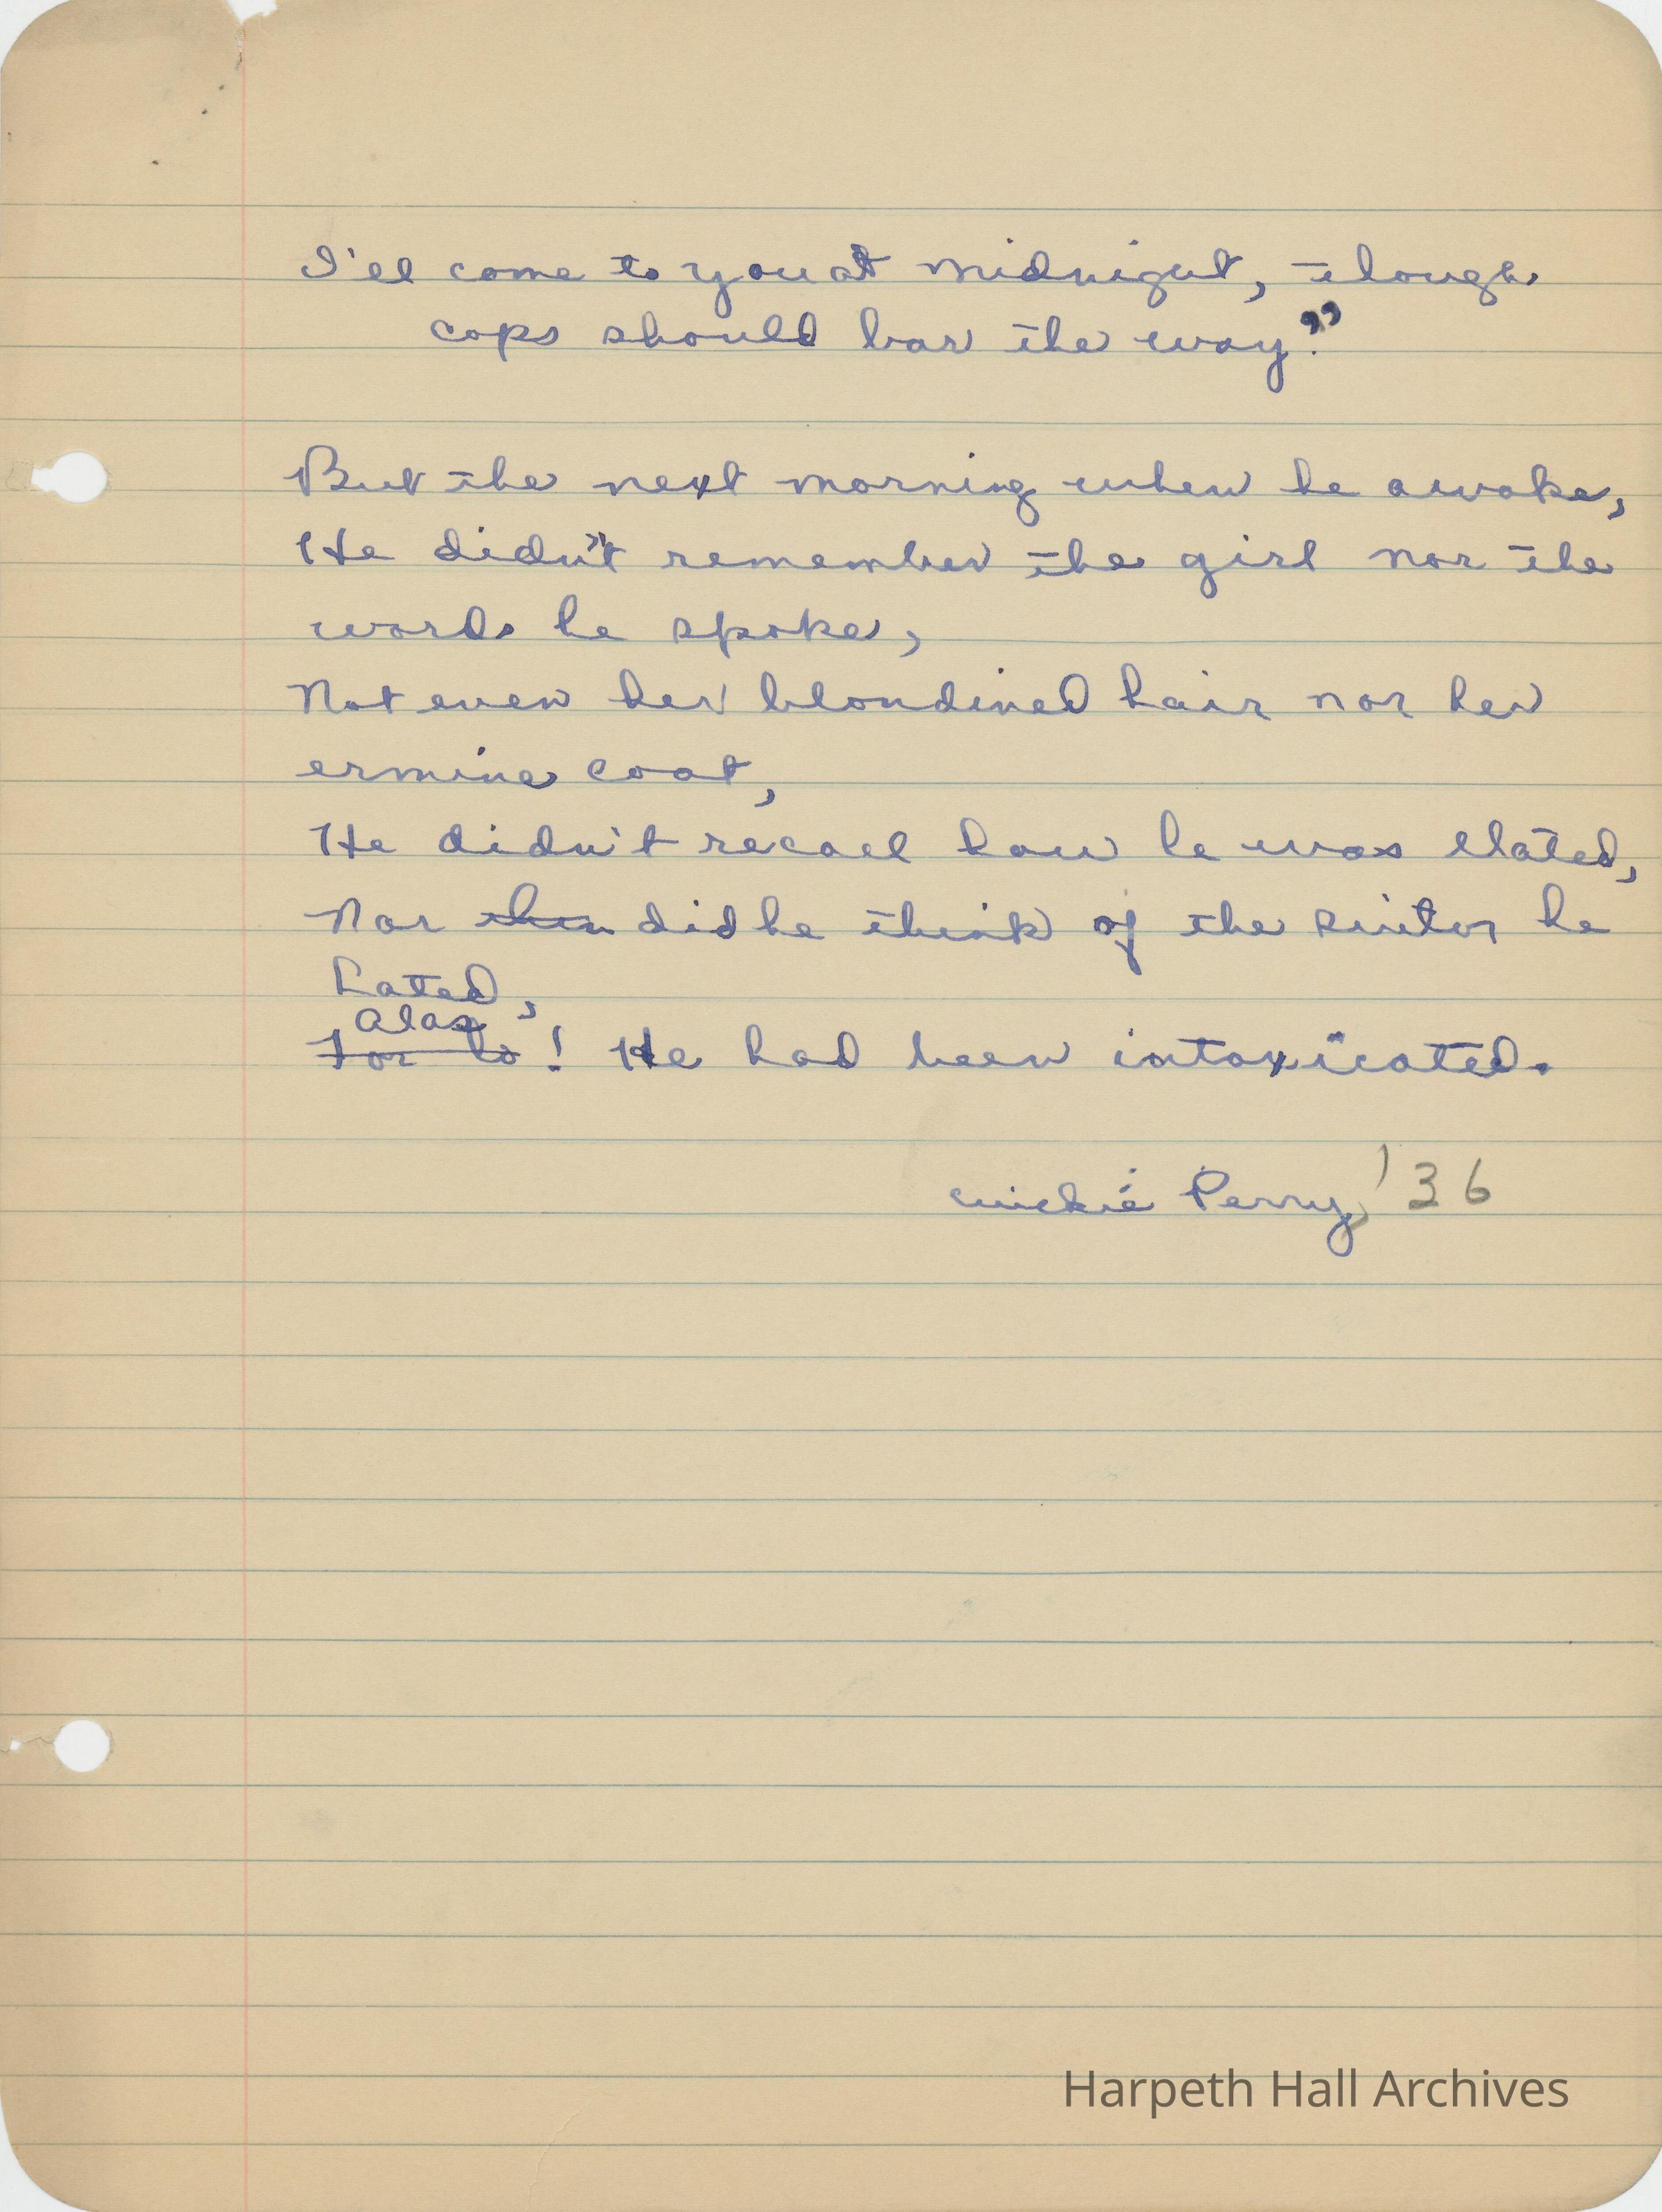 I'll come to you at midnight, though
cops should bar the way."
But the next morning when he awoke,
He didn't remember the girl nor the
words he spoke,
Not even her blondined hair nor her
ermine coat,
He didn't recall how he was elated,
Nor then did he think of the suitor he
hated,
Alas
For lo! He had been intoxicated.
Mickie Perry, '36
Harpeth Hall Archives